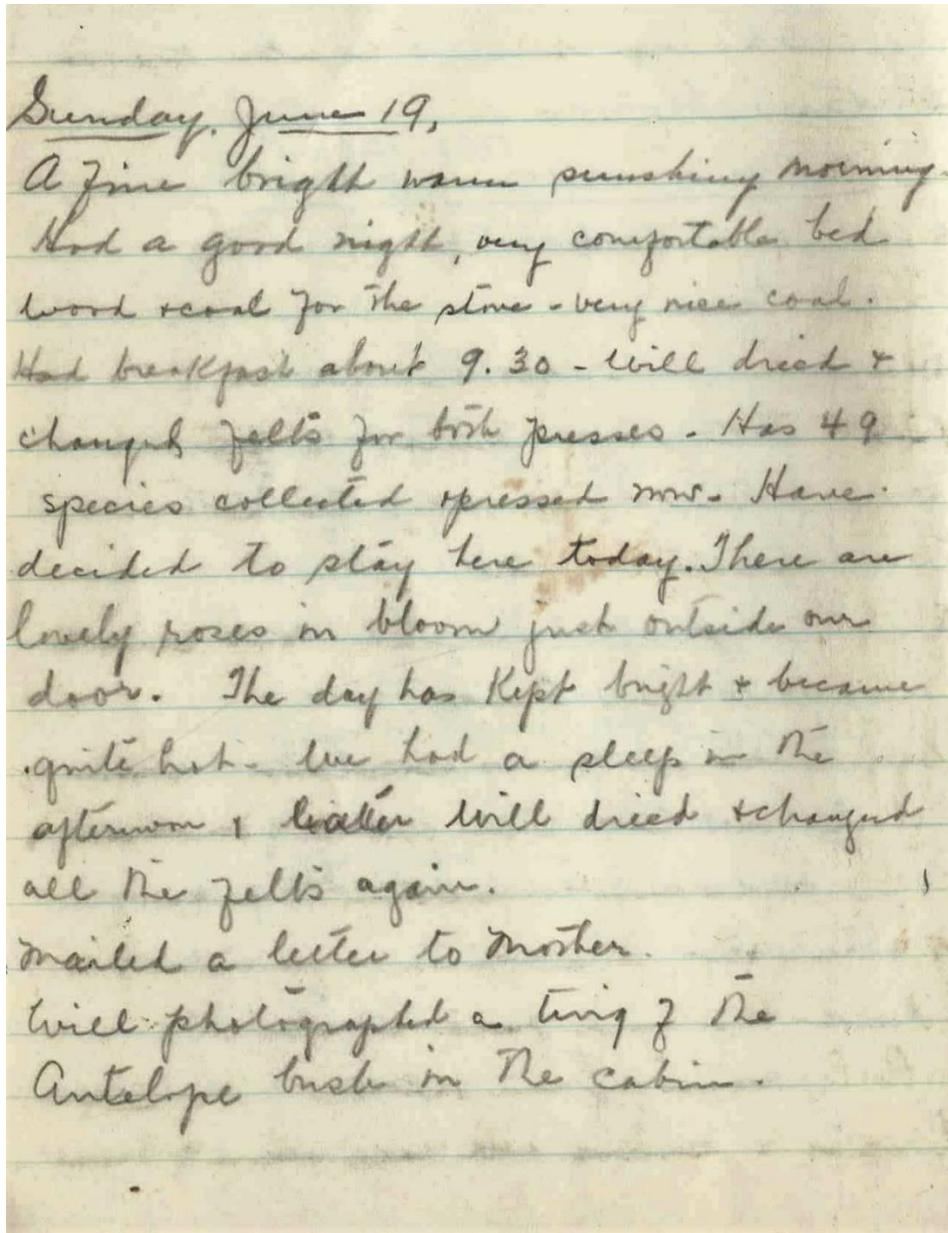 Sunday, June 19,
A fine bright warm sunshiny morning.
Had a good night, very comfortable bed
wood & coal for the stove - very nice coal.
Had breakfast about 9.30 - Will dried &
changed felts for both presses - Has 49
species collected & pressed now. Have
decided to stay here today. There are
lovely roses in bloom just outside our
door. The day has kept bright & became
quite hot - We had a sleep in the
afternoon & later Will dried & changed
all the felts again.
Mailed a letter to Mother.
Will photographed a twig of the
Antelope bush in the cabin.